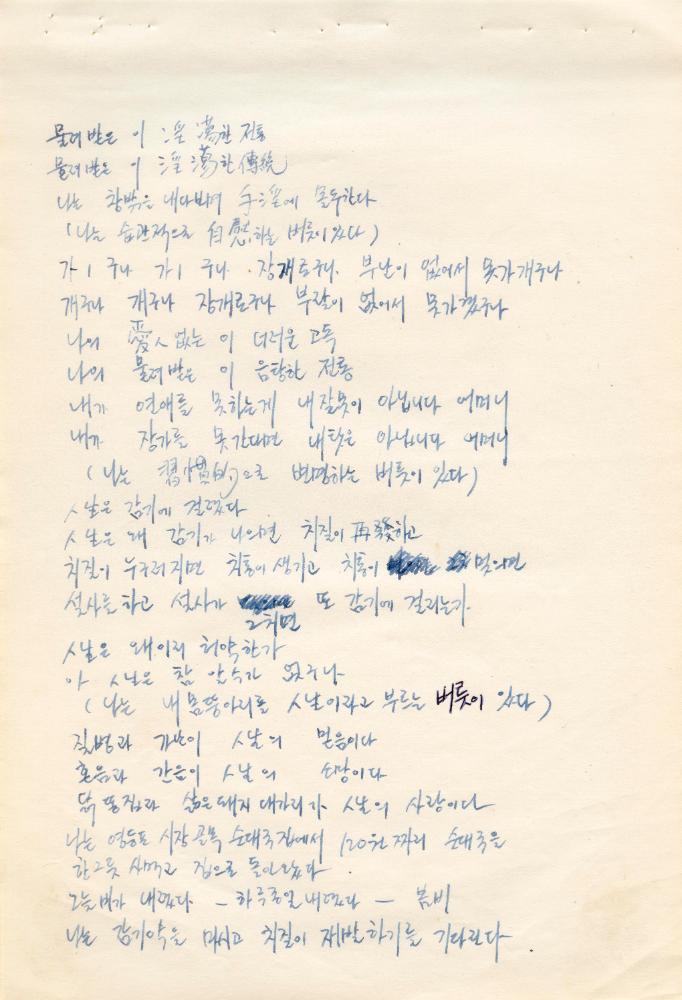 물려받은 이 淫蕩한 전통
물려받은 이 淫蕩한 傳統
나는 창밖을 내다보며 手淫에 몰두한다
(나는 습관적으로 自慰하는 버릇이 있다)
가 1 구나 가 1 구나 장개로구나 부난이 없어서 못가개구나
개구나 개구나 장개로구나 부랄이 없어서 못가겠구나
나의 愛人 없는 이 더러운 고독
나의 물려받은 이 음탕한 전통
내가 연애를 못하는게 내 잘못이 아닙니다 어머니
내가 장가를 못간대면 내 탓은 아닙니다 어머니
(나는 習慣的으로 변명하는 버릇이 있다)
시날은 감기에 걸렸다
시날은 왜 감기가 나으면 치질이 再發하고
치질이 누구러지면 치통이 생기고 치통이 멎으면
설사를 하고 설사가 그치면 또 감기에 걸리는가.
시날은 왜 이리 허약한가
아 시날은 참 알 수가 없구나
(나는 내 몸뚱아리를 시날이라고 부르는 버릇이 있다)
질병과 가난이 시날의 믿음이다
혼음과 간음이 시날의 소망이다
닭똥집과 삶은 돼지 대가리가 시날의 사랑이다
나는 영등포 시장골목 순대국집에서 120원짜리 순대국을
한그릇 사먹고 집으로 돌아왔다.
오늘 비가 내렸다 — 하루종일 내렸다 — 봄비
나는 감기약을 마시고 치질이 재발하기를 기다린다.